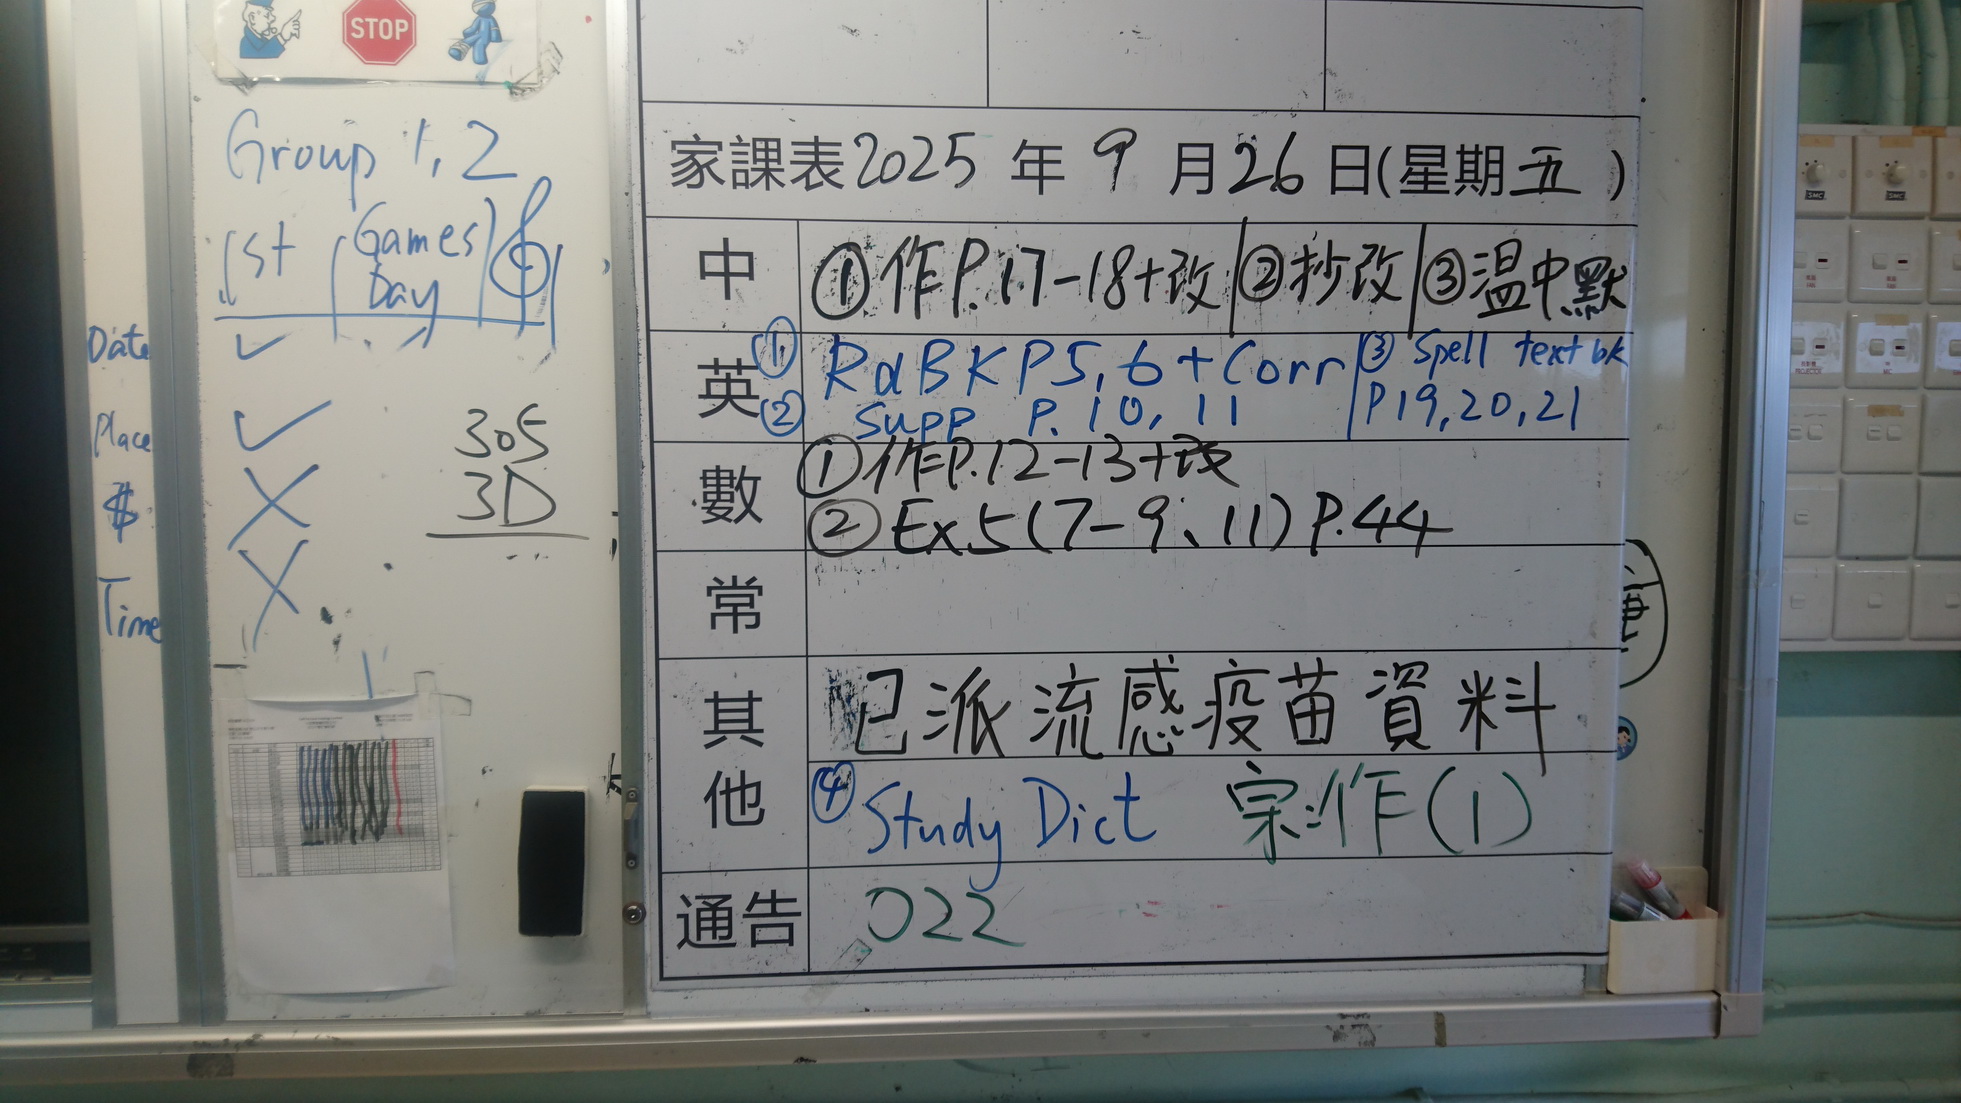 STOP
Group 1, 2
1st Games Day
Date
Place
$
Time
305
3D
家課表2025年9月26日(星期五)
中 ①作P.17-18+改 ②抄改 ③溫中默
英 ① Rd BK P5, 6 + Corr ③ Spell text bk
② Supp P. 10, 11 P19, 20, 21
數 ①作P.12-13+改
② Ex5(7-9、11) P.44
常
其他 已派流感疫苗資料
④ Study Dict 宗作(1)
通告 022